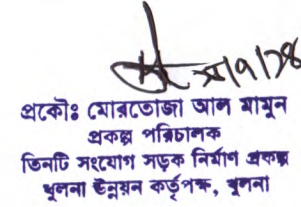 প্রকৌঃ মোরতোজা আল মামুন
প্রকল্প পরিচালক
তিনটি সংযোগ সড়ক নির্মাণ প্রকল্প
খুলনা উন্নয়ন কর্তৃপক্ষ, খুলনা